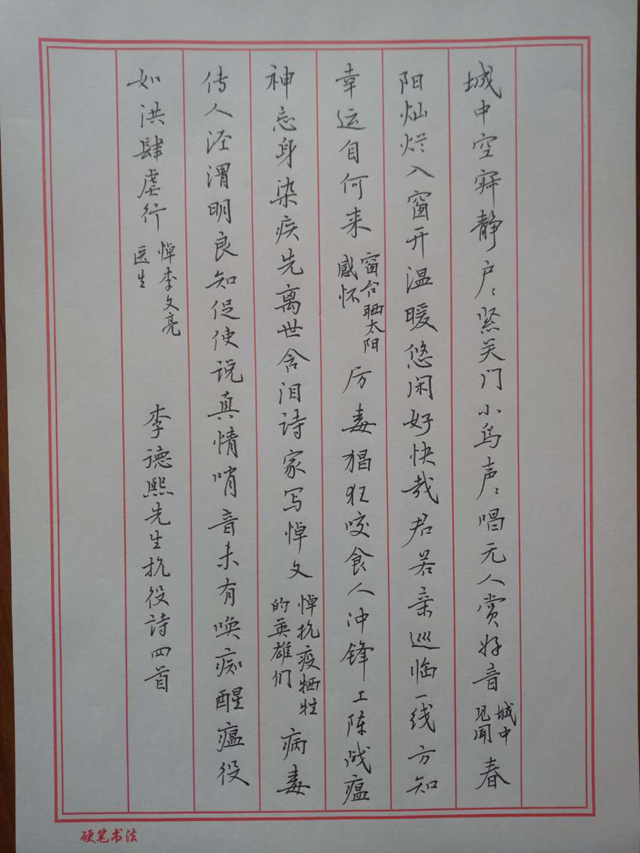 城中空寂静户々紧关门小鸟声々唱无人赏好音 城中见闻 春
阳灿烂入窗开温暖悠闲好快哉君若亲巡临一线方知
幸运自何来 窗台晒太阳感怀 厉毒猖狂咬食人冲锋上阵战瘟
神忘身染疾先离世含泪诗家写悼文 悼抗疫牺牲的英雄们 病毒
传人泾渭明良知促使说真情哨音未有唤痴醒瘟役
如洪肆虐行 悼李文亮医生 李德熙先生抗役诗四首
硬笔书法